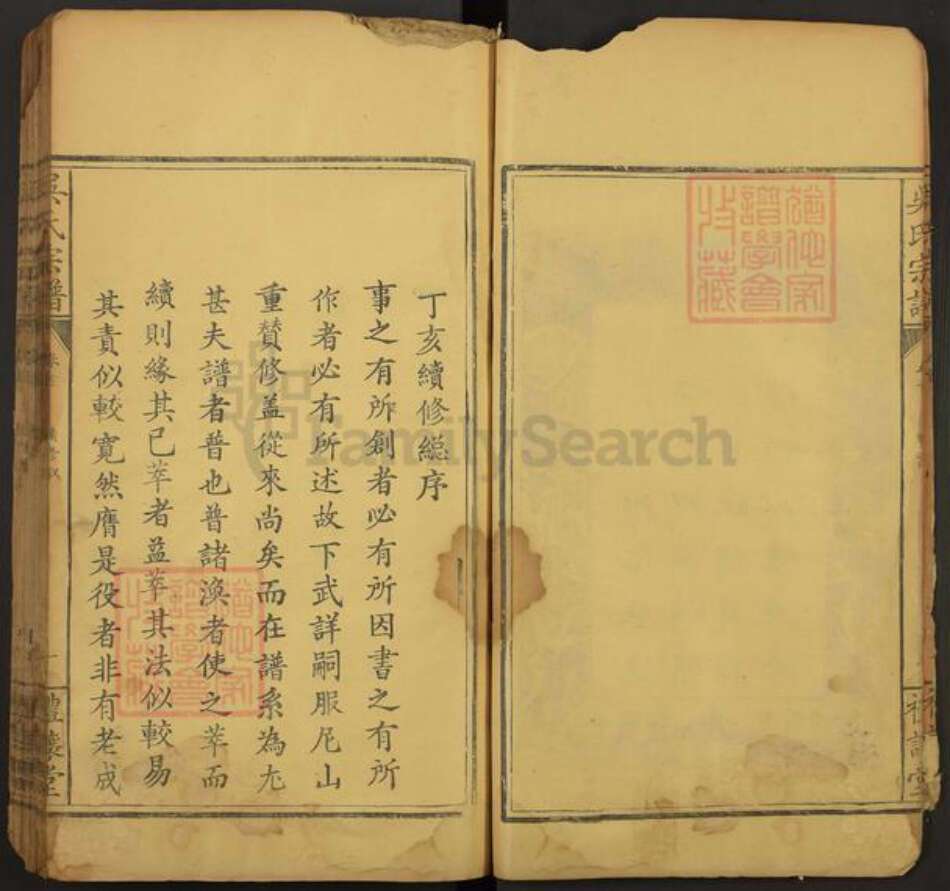 吳氏宗譜
丁亥續修總序
事之有所創者必有所因書之有所
作者必有所述故下武詳嗣服尼山
重贊修盖從來尚矣而在譜系為尤
甚夫譜者普也普諸渙者使之萃而
續則緣其已萃者益萃其法似較易
其責似較寬然膺是役者非有老成
吳氏宗譜
猶他家
譜學會
收藏
猶他家
譜學會
收藏
FamilySearch